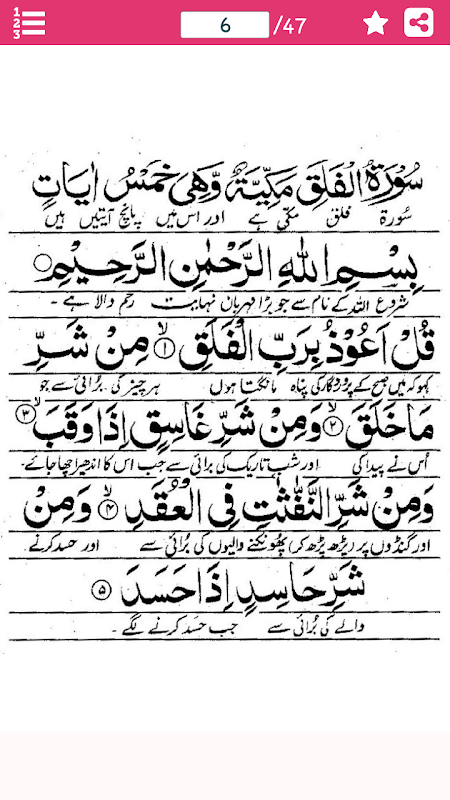 1
2
3
6 /47
سُوْرَةُ الْفَلَقِ مَكِّيَّةٌ وَّهِىَ خَمْسُ اٰيَاتٍ
سُورۃ فلق مکی ہے اور اس میں پانچ آیتیں ہیں
بِسْمِ اللهِ الرَّحْمٰنِ الرَّحِيْمِ
شروع اللہ کے نام سے جو بڑا مہربان نہایت رحم والا ہے -
قُلْ اَعُوْذُ بِرَبِّ الْفَلَقِ ۙ﴿۱﴾ مِنْ شَرِّ
کہو کہ میں صبح کے پروردگار کی پناہ مانگتا ہوں ہر چیز کی برائی سے جو
مَا خَلَقَ ۙ﴿۲﴾ وَمِنْ شَرِّ غَاسِقٍ اِذَا وَقَبَ ۙ﴿۳﴾
اُس نے پیدا کی اور شب تاریک کی برائی سے جب اس کا اندھیرا چھا جائے-
وَمِنْ شَرِّ النَّفّٰثٰتِ فِى الْعُقَدِ ۙ﴿۴﴾ وَمِنْ
اور گنڈوں پر (پڑھ پڑھ کر) پھونکنے والیوں کی بُرائی سے اور حسد کرنے
شَرِّ حَاسِدٍ اِذَا حَسَدَ ﴿۵﴾
والے کی بُرائی سے جب حسد کرنے لگے -